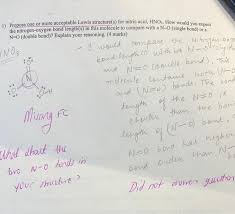 1) Propose one or more acceptable Lewis structure(s) for nitric acid, HNO₃. How would you expect
the nitrogen-oxygen bond length(s) in this molecule to compare with a N-O (single bond) or a
N=O (double bond)? Explain your reasoning. (4 marks)
HNO₃
- I would compare the Nitrogen-oxygen
bond length(s) with N-O
and N=O (double bond). This
molecule contains
and (N=O) bonds. The
length of the N=O is
shorter than the bond
length of (N-O) bond.
N=O bond has higher
bond order than N-
Missing FC
What about the
two N-O bonds in
your structure?
Did not answer question